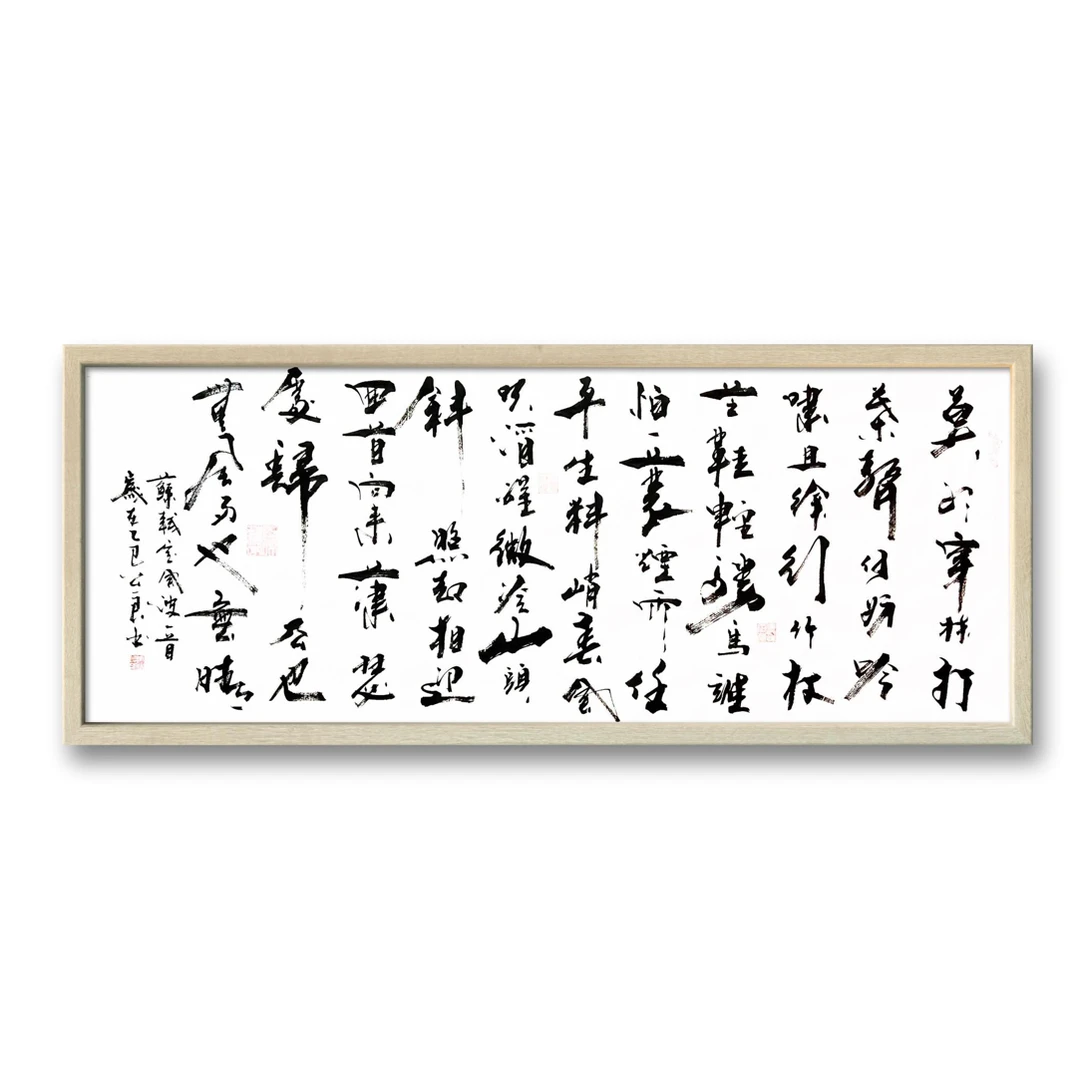 莫聽穿林打
葉聲何妨吟
嘯且徐行竹杖
芒鞋輕勝馬誰
怕一蓑煙雨任
平生料峭春風
吹酒醒微冷山頭
斜照却相迎
回首向來蕭瑟
處歸去也
無風雨也無晴
蘇軾定風波一首
歲在乙巳書